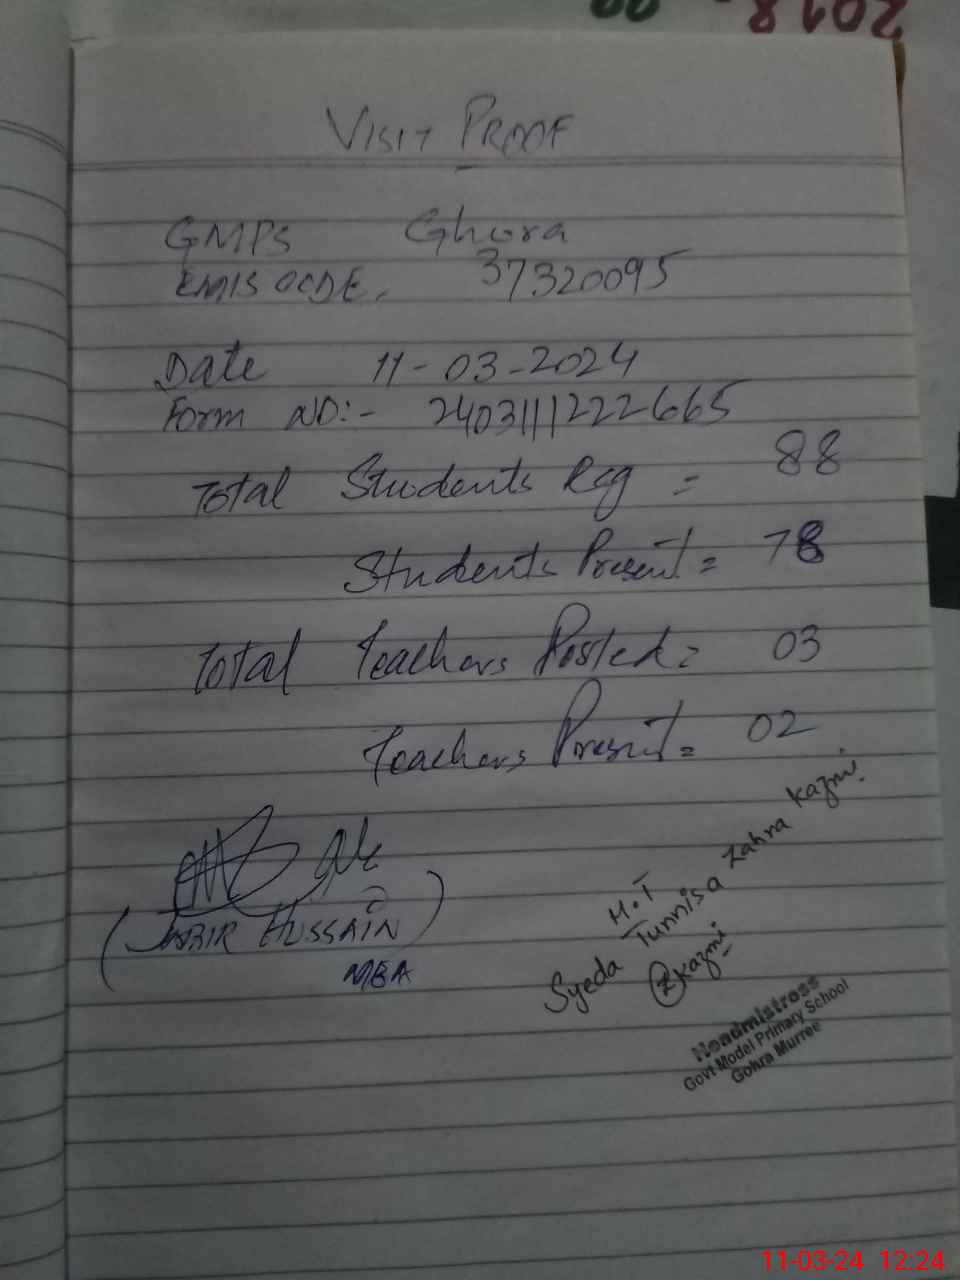 2018
VISIT PROOF
GMPS Ghora
EMIS OCDE. 37320095
Date 11-03-2024
Form NO:- 2403111222665
Total Students Reg = 88
Students Present = 78
Total Teachers Posted = 03
Teachers Present = 02
HUSSAIN)
MBA
H.T
Syeda Tunnisa Zahra Kazmi
Zkazmi
Headmistress
Govt Model Primary School
Gohra Murree
11-03-24 12:24